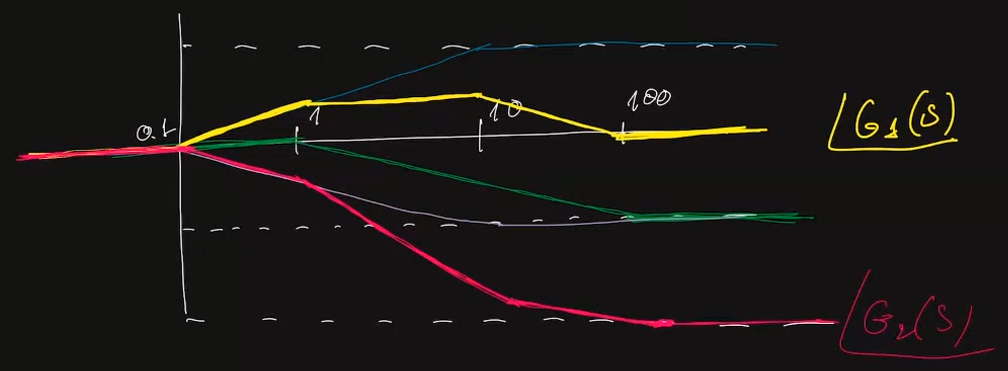 0.1
1
10
100
∠G₁(s)
∠G₂(s)